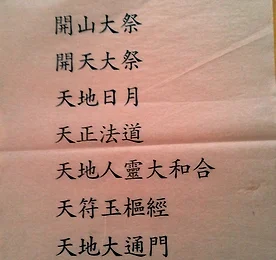 開山大祭
開天大祭
天地日月
天正法道
天地人靈大和合
天符玉樞經
天地大通門